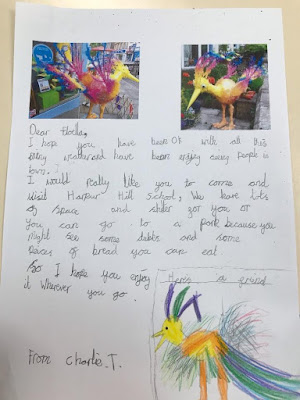 Dear Holla,
I hope you have been OK with all this
rainy weather and have been enjoying seeing people in
town.
I would really like you to come and
visit Harbour Hill School, We have lots
of space and shelter for you or
You can go to a park because you
might see some and some
Peices of bread you can eat.
So I hope you enjoy
it wherever you go.
Heres a freind
From Charlie.T.